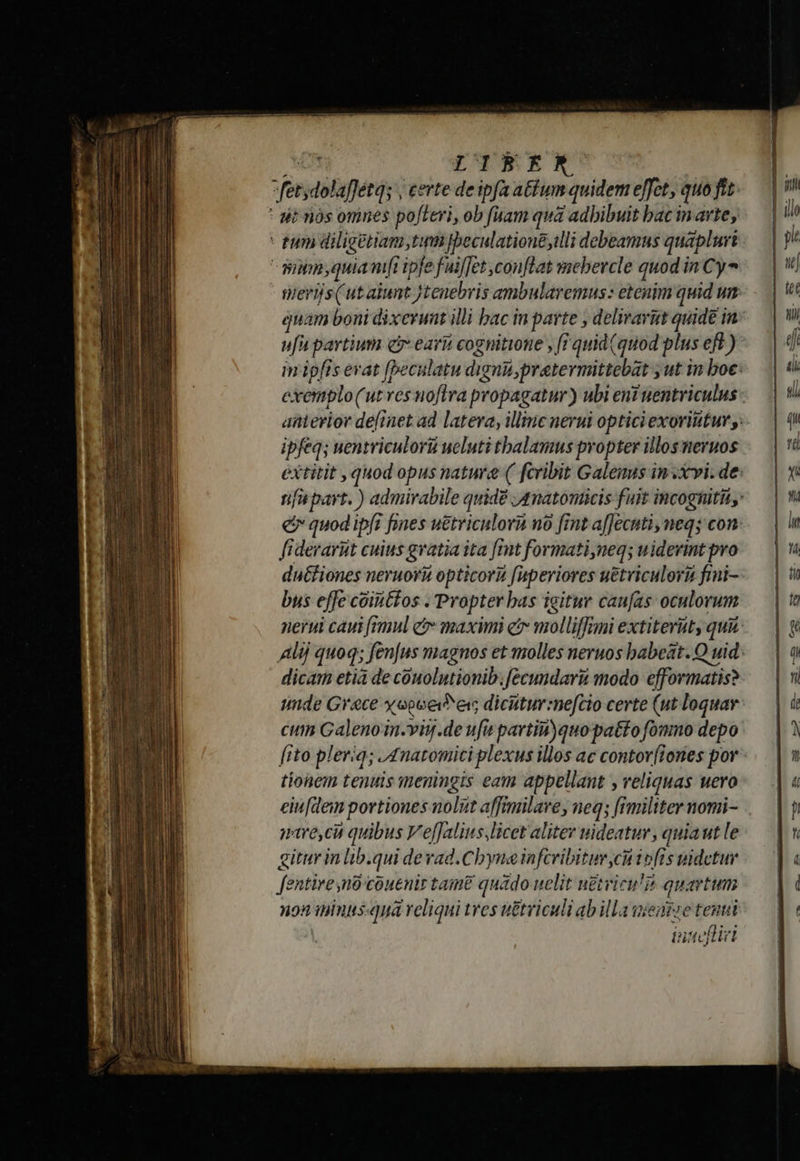 LIBER
ſet, dolaſſetq; , certe de ipſa actum quidem eſſet, quo fit
ut nòs omnes poſteri, ob ſuam quã adhibuit hac in arte,
tum diligētiam, tum ſpeculationē, illi debeamus quãpluri
mum, quia niſi ipſe fuiſſet, conſtat mehercle quod in Cy=
merijs (ut aiunt) tenebris ambularemus: etenim quid un
quam boni dixerunt illi hac in parte, delirarūt quidē in
uſu partium & earũ cognitione, ſi quid (quod plus eſt)
in ipſis erat ſpeculatu dignũ, prætermittebāt, ut in hoc
exemplo (ut res noſtra propagatur) ubi enī uentriculus
anterior deſinet ad latera, illinc nerui optici exoriūtur,
ipſeq; uentriculorũ ueluti thalamus propter illos neruos
extitit, quod opus naturæ (ſcribit Galenus in .xvi. de
uſu part.) admirabile quidē Anatomicis fuit incognitũ,
& quod ipſi fines uētriculorũ nō ſint aſſecuti, neq; con
ſiderarūt cuius gratia ita ſint formati, neq; uiderint pro
ductiones neruorũ opticorũ ſuperiores uētriculorũ fini-
bus eſſe cōiūctos. Propter has igitur cauſas oculorum
nerui caui ſimul & maximi & molliſſimi extiterūt, quũ
Alij quoq; ſenſus magnos et molles neruos habeāt. Quid
dicam etiā de cōuolutionib. ſecundarũ modo efformatis?
unde Græce χοροειδεις dicūtur: neſcio certe (ut loquar
cum Galeno in .viij. de uſu partiũ) quo pacto ſomno depo
ſito pleriq; Anatomici plexus illos ac contorſiones por
tionem tenuis meningis eam appellant, reliquas uero
eiuſdem portiones nolūt aſſimilare, neq; ſimiliter nomi-
nare, cũ quibus Veſſalius, licet aliter uideatur, quia ut le
gitur in lib. qui de rad. Chynæ inſcribitur, cũ ipſis uidetur
ſentire, nō cōuenit tamē quādo uelit uētriculũ quartum
non minus quã reliqui tres uētriculi ab illa menīge tenui
inueſtiri